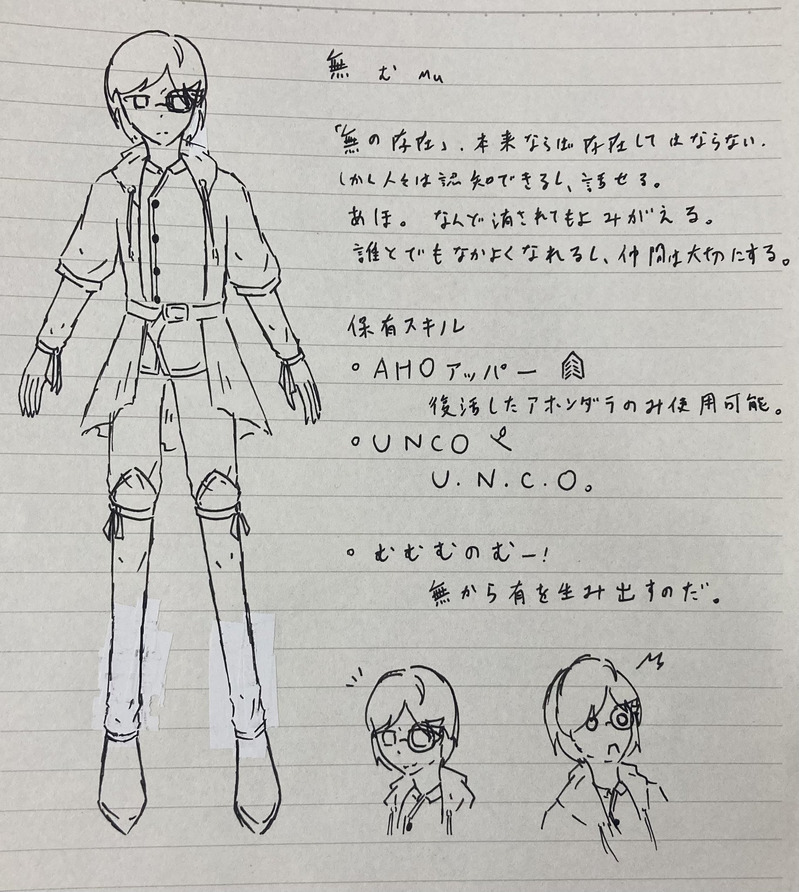 無 む Mu
「無の存在」.本来ならば存在してはならない.
しかし人々は認知できるし、話せる。
あほ。なんで消されてもよみがえる。
誰とでもなかよくなれるし、仲間は大切にする。
保有スキル
○AHOアッパー
復活したアホンダラのみ使用可能。
○UNCO
U.N.C.O。
○むむむのむー!
無から有を生み出すのだ。